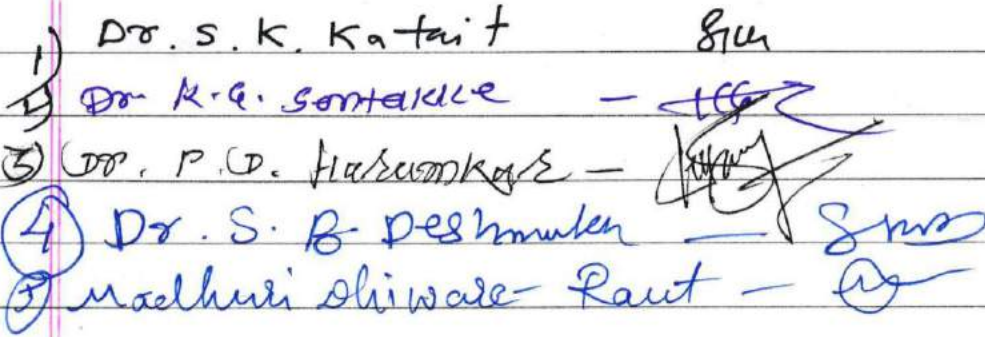 1) Dr. S. K. Katait
2) Dr. K.G. Sontakke -
3) Dr. P. D. Harsamkar -
4) Dr. S. B Deshmukh -
5) Madhuri Dhiware - Raut -